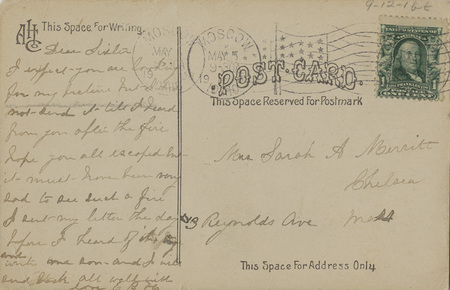 9-12-16
AHC This Space For Writing
Dear Sister
I expect you are looking
for my picture but I did
not send it till I heard
from you after the fire
hope you all escaped but
it must have been very
sad to see such a fire
I sent my letter the day
before I heard of it
and
write me soon and I will
and all well
MOSCOW
MAY
19
MOSCOW
MAY
19
POST-CARD.
This Space Reserved for Postmark
Mrs Sarah A Merritt
Chelsea
Reynolds Ave Mass
This Space For Address Only.